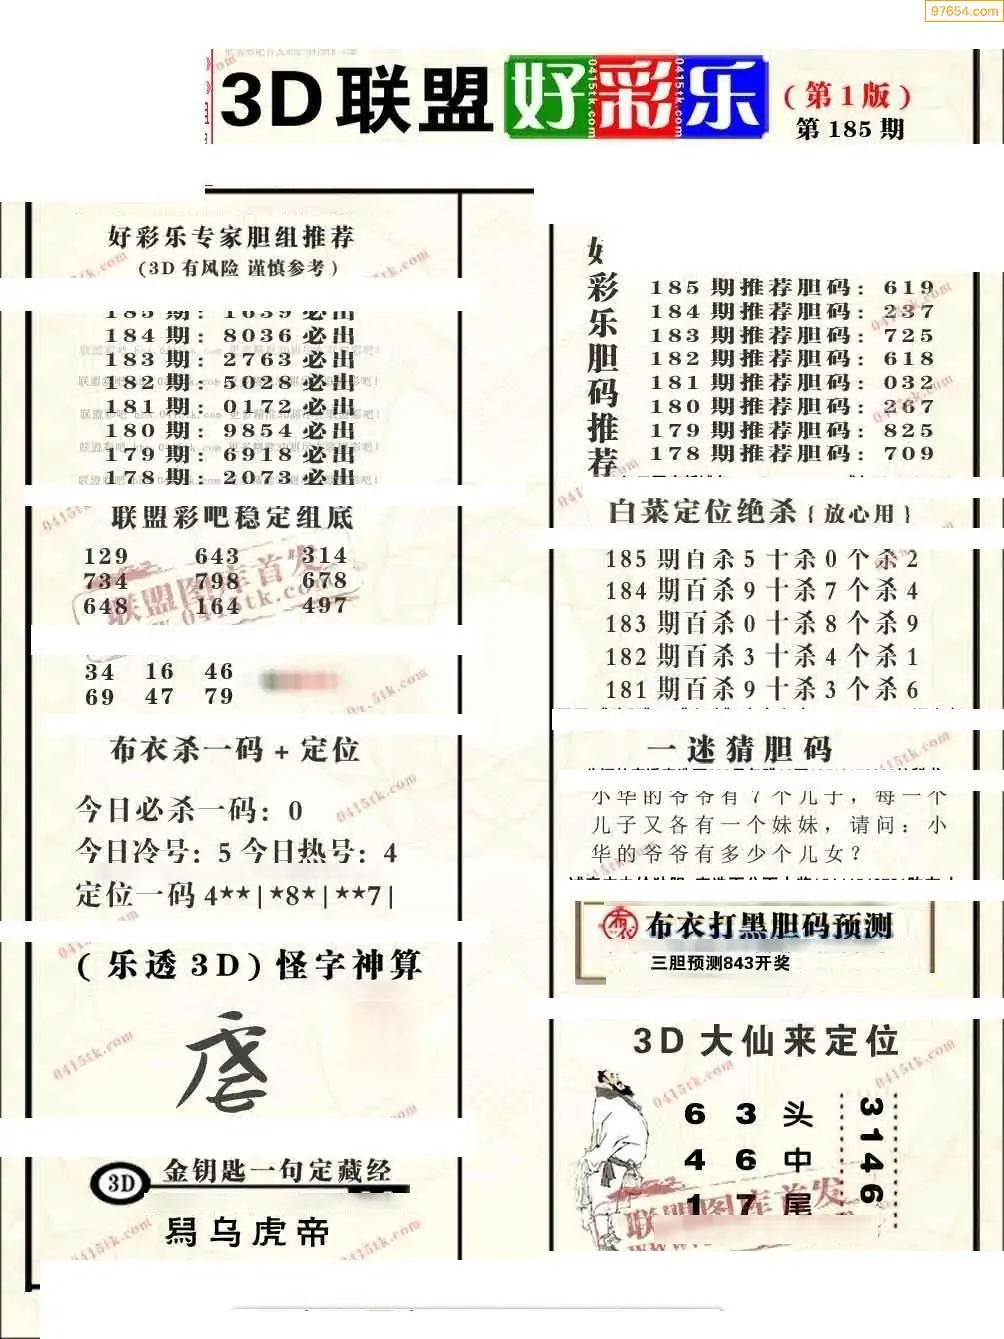 97654.com
3D联盟好彩乐
(第1版)
第185期
好彩乐专家胆组推荐
(3D有风险 谨慎参考)
185期: 1639必出
184期: 8036必出
183期: 2763必出
182期: 5028必出
181期: 0172必出
180期: 9854必出
179期: 6918必出
178期: 2073必出
联盟彩吧稳定组底
129 643 314
734 798 678
648 164 497
34 16 46
69 47 79
布衣杀一码+定位
今日必杀一码: 0
今日冷号: 5 今日热号: 4
定位一码4**|*8*|**7|
(乐透3D)怪字神算
3D 金钥匙一句定藏经
乌虎帝
好彩乐胆码推荐
185期推荐胆码: 619
184期推荐胆码: 237
183期推荐胆码: 725
182期推荐胆码: 618
181期推荐胆码: 032
180期推荐胆码: 267
179期推荐胆码: 825
178期推荐胆码: 709
白菜定位绝杀{放心用}
185期百杀5十杀0个杀2
184期百杀9十杀7个杀4
183期百杀0十杀8个杀9
182期百杀3十杀4个杀1
181期百杀9十杀3个杀6
一迷猜胆码
小华的爷爷有7个儿子，每一个
儿子又各有一个妹妹，请问：小
华的爷爷有多少个儿女？
布衣 布衣打黑胆码预测
三胆预测843开奖
3D大仙来定位
6 3 头
4 6 中
1 7 尾
3146
联盟图库首发
0415tk.com